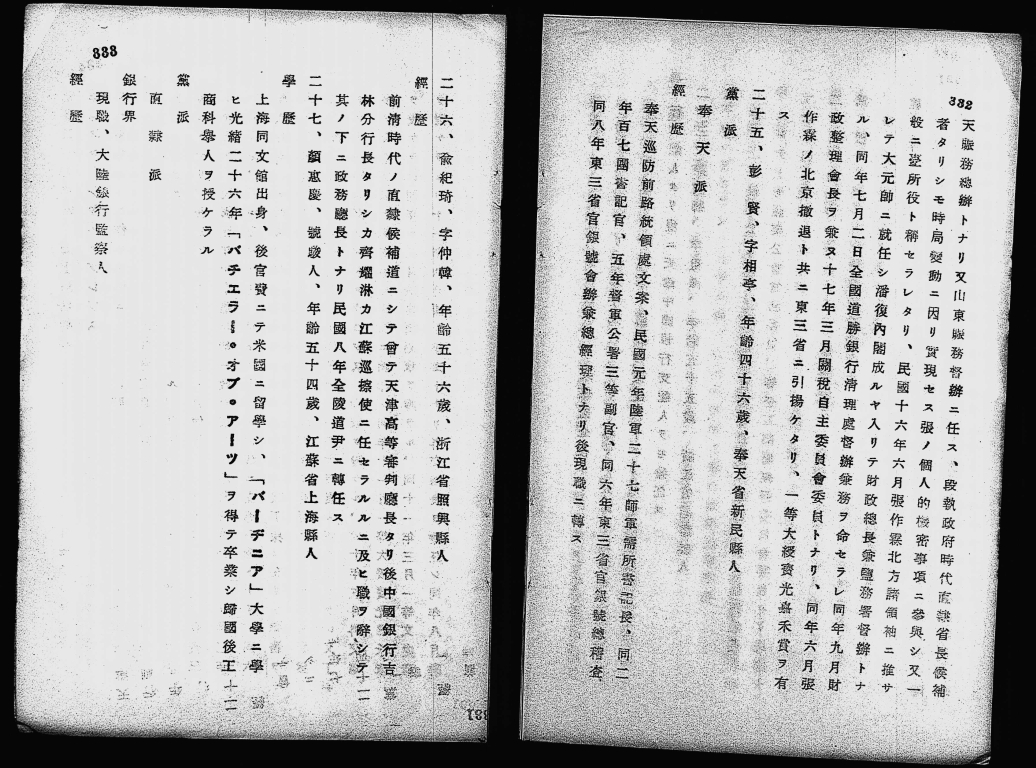 332
天賑務總辦トナリ又山東賑務督辦ニ任ス、段執政府時代直隷省長候補
者タリシモ時局變動ニ因リ實現セス張ノ個人的機密事項ニ參與シ又一
般ニ臺所役ト稱セラレタリ、民國十六年六月張作霖北方諸領袖ニ推サ
レテ大元帥ニ就任シ潘復內閣成ルヤ入リテ財政總長兼鹽務署督辦トナ
ル、同年七月二日全國道勝銀行淸理處督辦兼務ヲ命セラレ同年九月財
政整理會長ヲ兼ヌ十七年三月關稅自主委員會委員トナリ、同年六月張
作霖ノ北京撤退ト共ニ東三省ニ引揚ケタリ、一等大綬寶光嘉禾賞ヲ有
ス
二十五、彭賢、字相亭、年齡四十六歲、奉天省新民縣人
黨派
奉天派
經歷
奉天巡防前路統領處文案、民國元年陸軍二十七師軍需所書記長、同二
年百七團書記官、五年督軍公署三等副官、同六年東三省官銀號總稽査
同八年東三省官銀號會辦兼總經理トナリ後現職ニ轉ス
333
二十六、兪紀琦、字仲韓、年齡五十六歲、浙江省照興縣人
經歷
前淸時代ノ直隷候補道ニシテ曾テ天津高等審判廳長タリ後中國銀行吉
林分行長タリシカ齊耀淋カ江蘇巡按使ニ任セラルルニ及ヒ職ヲ辭シテ
其ノ下ニ政務廳長トナリ民國八年金陵道尹ニ轉任ス
二十七、顏惠慶、號駿人、年齡五十四歲、江蘇省上海縣人
學歷
上海同文館出身、後官費ニテ米國ニ留學シ、「バーヂニア」大學ニ學
ヒ光緖二十六年「バチエラー。オブ。アーツ」ヲ得テ卒業シ歸國後工
商科擧人ヲ授ケラル
黨派
直隷派
銀行界
現職、大陸銀行監察人
經歷
331